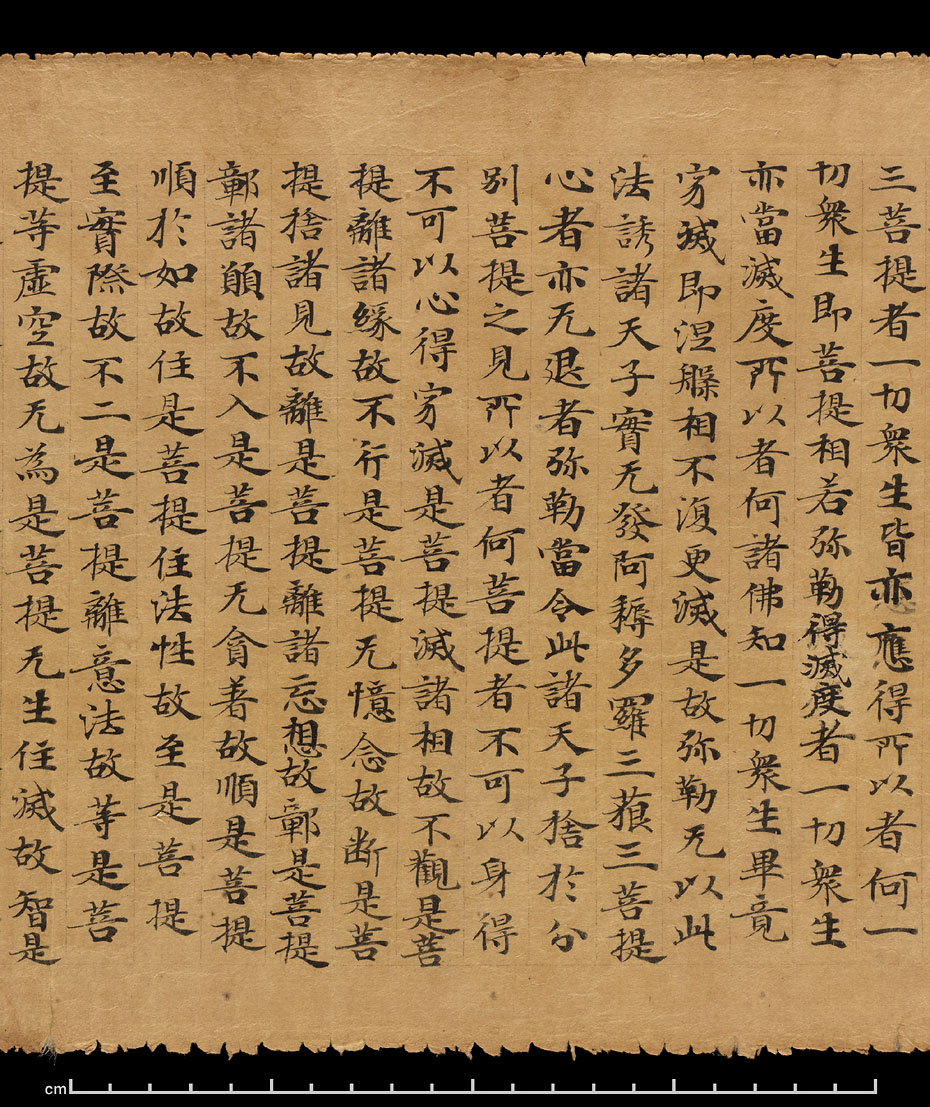 三菩提者一切衆生皆亦應得所以者何一
切衆生即菩提相若弥勒得滅度者一切衆生
亦當滅度所以者何諸佛知一切衆生畢竟
穷滅即涅槃相不復更滅是故弥勒无以此
法誘諸天子實无發阿耨多羅三藐三菩提
心者亦无退者弥勒當令此諸天子捨於分
別菩提之見所以者何菩提者不可以身得
不可以心得穷滅是菩提滅諸相故不觀是菩
提離諸緣故不行是菩提无憶念故断是菩
提捨諸見故離是菩提離諸忘想故鄣是菩提
鄣諸願故不入是菩提无貪著故順是菩提
順於如故住是菩提住法性故至是菩提
至實際故不二是菩提離意法故等是菩
提等虛空故无為是菩提无生住滅故智是